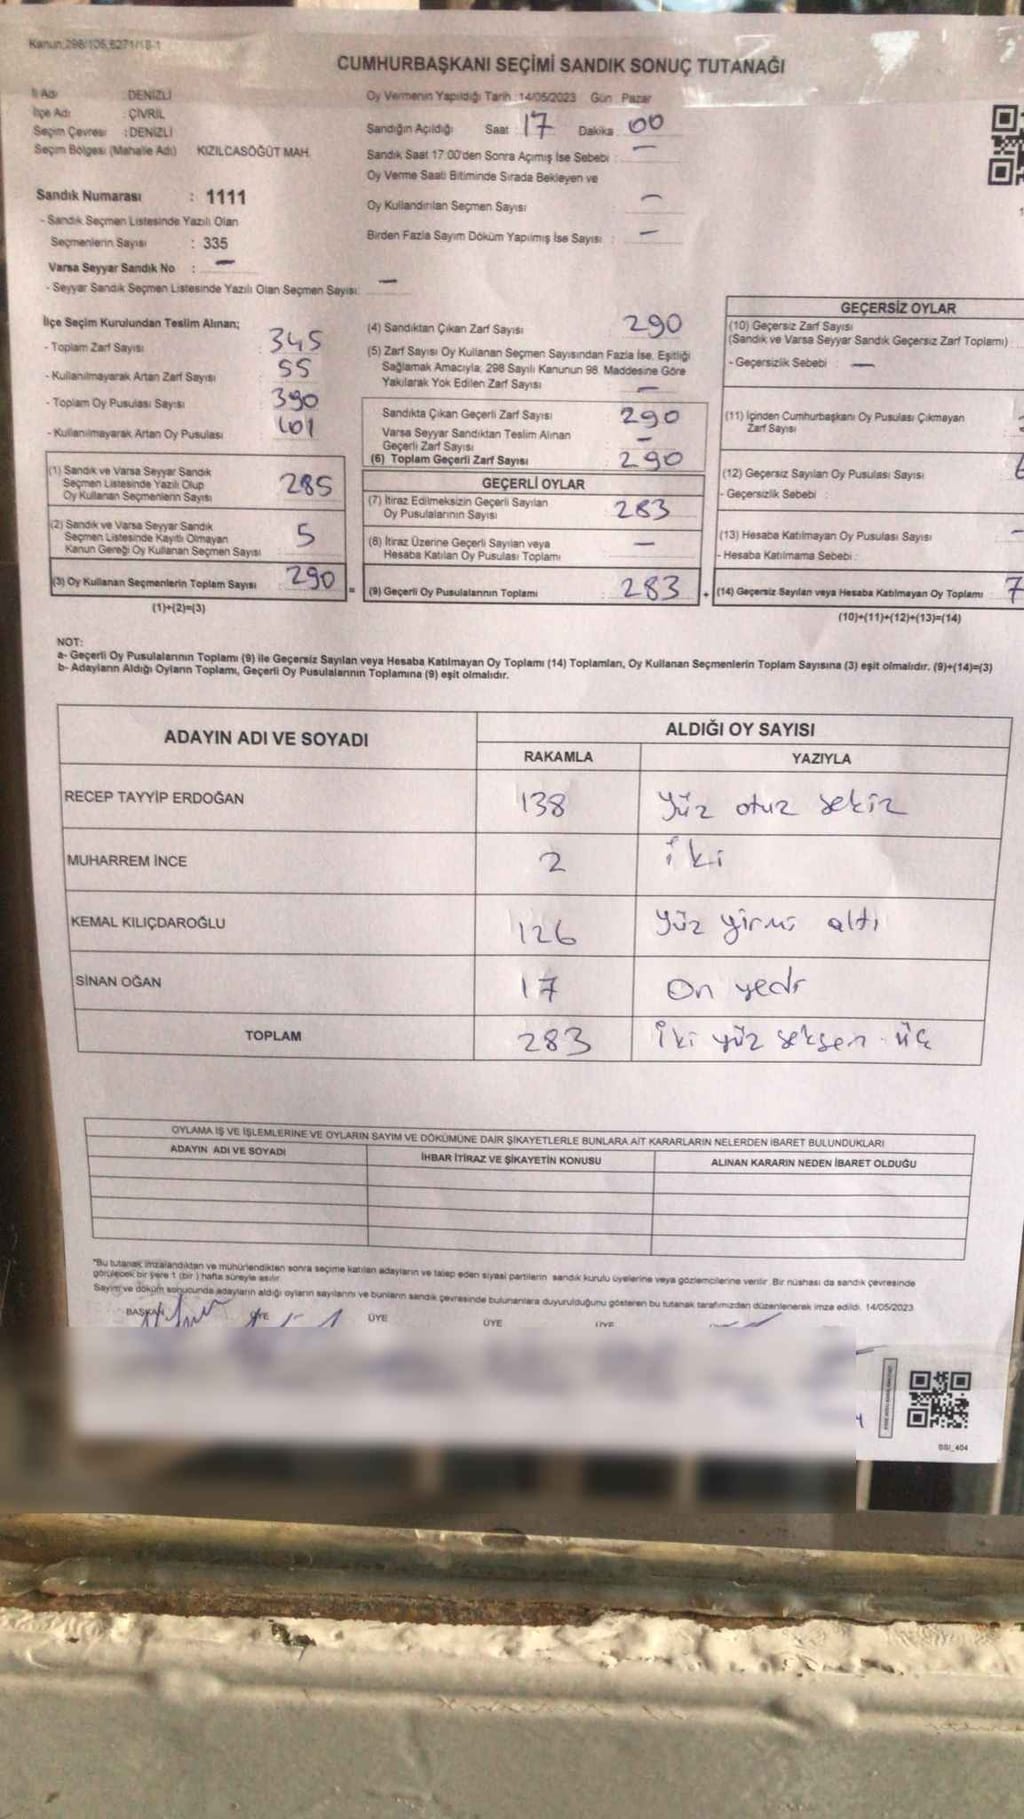 Kanun;298/105,6271/18-1
CUMHURBAŞKANI SEÇİMİ SANDIK SONUÇ TUTANAĞI
İl Adı : DENİZLİ
İlçe Adı : ÇİVRİL
Seçim Çevresi : DENİZLİ
Seçim Bölgesi (Mahalle Adı) KIZILCASÖĞÜT MAH.
Oy Vermenin Yapıldığı Tarih :14/05/2023 Gün : Pazar
Sandığın Açıldığı Saat : 17 Dakika : 00
Sandık Saat 17:00'den Sonra Açımış İse Sebebi : —
Oy Verme Saati Bitiminde Sırada Bekleyen ve
Oy Kullandırılan Seçmen Sayısı —
Birden Fazla Sayım Döküm Yapılmış İse Sayısı : —
Sandık Numarası : 1111
- Sandık Seçmen Listesinde Yazılı Olan
Seçmenlerin Sayısı : 335
Varsa Seyyar Sandık No : —
- Seyyar Sandık Seçmen Listesinde Yazılı Olan Seçmen Sayısı: —
İlçe Seçim Kurulundan Teslim Alınan;
- Toplam Zarf Sayısı : 345
- Kullanılmayarak Artan Zarf Sayısı : 55
- Toplam Oy Pusulası Sayısı : 390
- Kullanılmayarak Artan Oy Pusulası : 101
(1) Sandık ve Varsa Seyyar Sandık
Seçmen Listesinde Yazılı Olup
Oy Kullanan Seçmenlerin Sayısı : 285
(2) Sandık ve Varsa Seyyar Sandık
Seçmen Listesinde Kayıtlı Olmayan
Kanun Gereği Oy Kullanan Seçmen Sayısı : 5
(3) Oy Kullanan Seçmenlerin Toplam Sayısı : 290 =
(1)+(2)=(3)
(4) Sandıktan Çıkan Zarf Sayısı : 290
(5) Zarf Sayısı Oy Kullanan Seçmen Sayısından Fazla İse, Eşitliği
Sağlamak Amacıyla, 298 Sayılı Kanunun 98. Maddesine Göre
Yakılarak Yok Edilen Zarf Sayısı : —
Sandıkta Çıkan Geçerli Zarf Sayısı : 290
Varsa Seyyar Sandıktan Teslim Alınan
Geçerli Zarf Sayısı : —
(6) Toplam Geçerli Zarf Sayısı : 290
GEÇERLİ OYLAR
(7) İtiraz Edilmeksizin Geçerli Sayılan
Oy Pusulalarının Sayısı : 283
(8) İtiraz Üzerine Geçerli Sayılan veya
Hesaba Katılan Oy Pusulası Toplamı : —
(9) Geçerli Oy Pusulalarının Toplamı : 283 +
GEÇERSİZ OYLAR
(10) Geçersiz Zarf Sayısı
(Sandık ve Varsa Seyyar Sandık Geçersiz Zarf Toplamı)
- Geçersizlik Sebebi : —
(11) İçinden Cumhurbaşkanı Oy Pusulası Çıkmayan
Zarf Sayısı
(12) Geçersiz Sayılan Oy Pusulası Sayısı
- Geçersizlik Sebebi :
(13) Hesaba Katılmayan Oy Pusulası Sayısı
- Hesaba Katılmama Sebebi :
(14) Geçersiz Sayılan veya Hesaba Katılmayan Oy Toplamı 7
(10)+(11)+(12)+(13)=(14)
NOT:
a- Geçerli Oy Pusulalarının Toplamı (9) ile Geçersiz Sayılan veya Hesaba Katılmayan Oy Toplamı (14) Toplamları, Oy Kullanan Seçmenlerin Toplam Sayısına (3) eşit olmalıdır. (9)+(14)=(3)
b- Adayların Aldığı Oyların Toplamı, Geçerli Oy Pusulalarının Toplamına (9) eşit olmalıdır.
ADAYIN ADI VE SOYADI ALDIĞI OY SAYISI
RAKAMLA YAZIYLA
RECEP TAYYİP ERDOĞAN 138 Yüz otuz sekiz
MUHARREM İNCE 2 iki
KEMAL KILIÇDAROĞLU 126 Yüz yirmi altı
SİNAN OĞAN 17 On yedi
TOPLAM 283 iki yüz seksen üç
OYLAMA İŞ VE İŞLEMLERİNE VE OYLARIN SAYIM VE DÖKÜMÜNE DAİR ŞİKAYETLERLE BUNLARA AİT KARARLARIN NELERDEN İBARET BULUNDUKLARI
ADAYIN ADI VE SOYADI İHBAR İTİRAZ VE ŞİKAYETİN KONUSU ALINAN KARARIN NEDEN İBARET OLDUĞU
*Bu tutanak imzalandıktan ve mühürlendikten sonra seçime katılan adayların ve talep eden siyasi partilerin sandık kurulu üyelerine veya gözlemcilerine verilir. Bir nüshası da sandık çevresinde
görülecek bir yere 1 (bir ) hafta süreyle asılır.
Sayım ve döküm sonucunda adayların aldığı oyların sayılarını ve bunların sandık çevresinde bulunanlara duyurulduğunu gösteren bu tutanak tarafımızdan düzenlenerek imza edildi. 14/05/2023
BAŞKAN ÜYE ÜYE ÜYE ÜYE
SSI_404